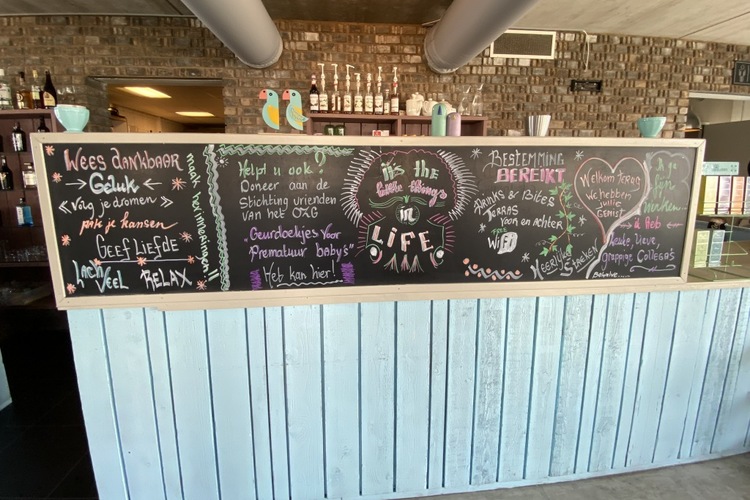 Wees dankbaar
Geluk
volg je dromen
pak je kansen
Geef Liefde
Lach veel
RELAX
maak herinneringen!!
Helpt u ook?
Doneer aan de
Stichting vrienden
van het OZG
"Geurdoekjes voor
Prematuur baby's"
Het kan hier!
it's the
little things
in
LiFE
BESTEMMING
BEREIKT
DRiNKS & BiTES
TERRAS
VOOR EN ACHTER
FREE
WiFi
HEERLIJKE
Welkom terug
We hebben
jullie
Gemist
Leuke, Lieve
Grappige Collega's